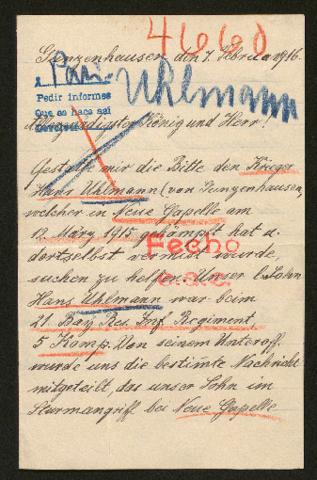 4660
Gunzenhausen den 7. Februar 1916.
Uhlmann
Pedir informes
Que se haga así
Allergnädigster König und Herr!
Gestatte mir die Bitte den Krieger
Hans Uhlmann (von Gunzenhausen,
welcher in Neue Capelle am
12 März 1915 gekämpft hat u.
dortselbst vermißt wurde,
suchen zu helfen. Unser l. Sohn
Fecho
Hans Uhlmann war beim
21 Bay. Res. Inf. Regiment
5 Komp. Von seinem Unteroff.
wurde uns die bestimte Nachricht
mitgeteilt, das unser Sohn im
Sturmangriff bei Neue Capelle